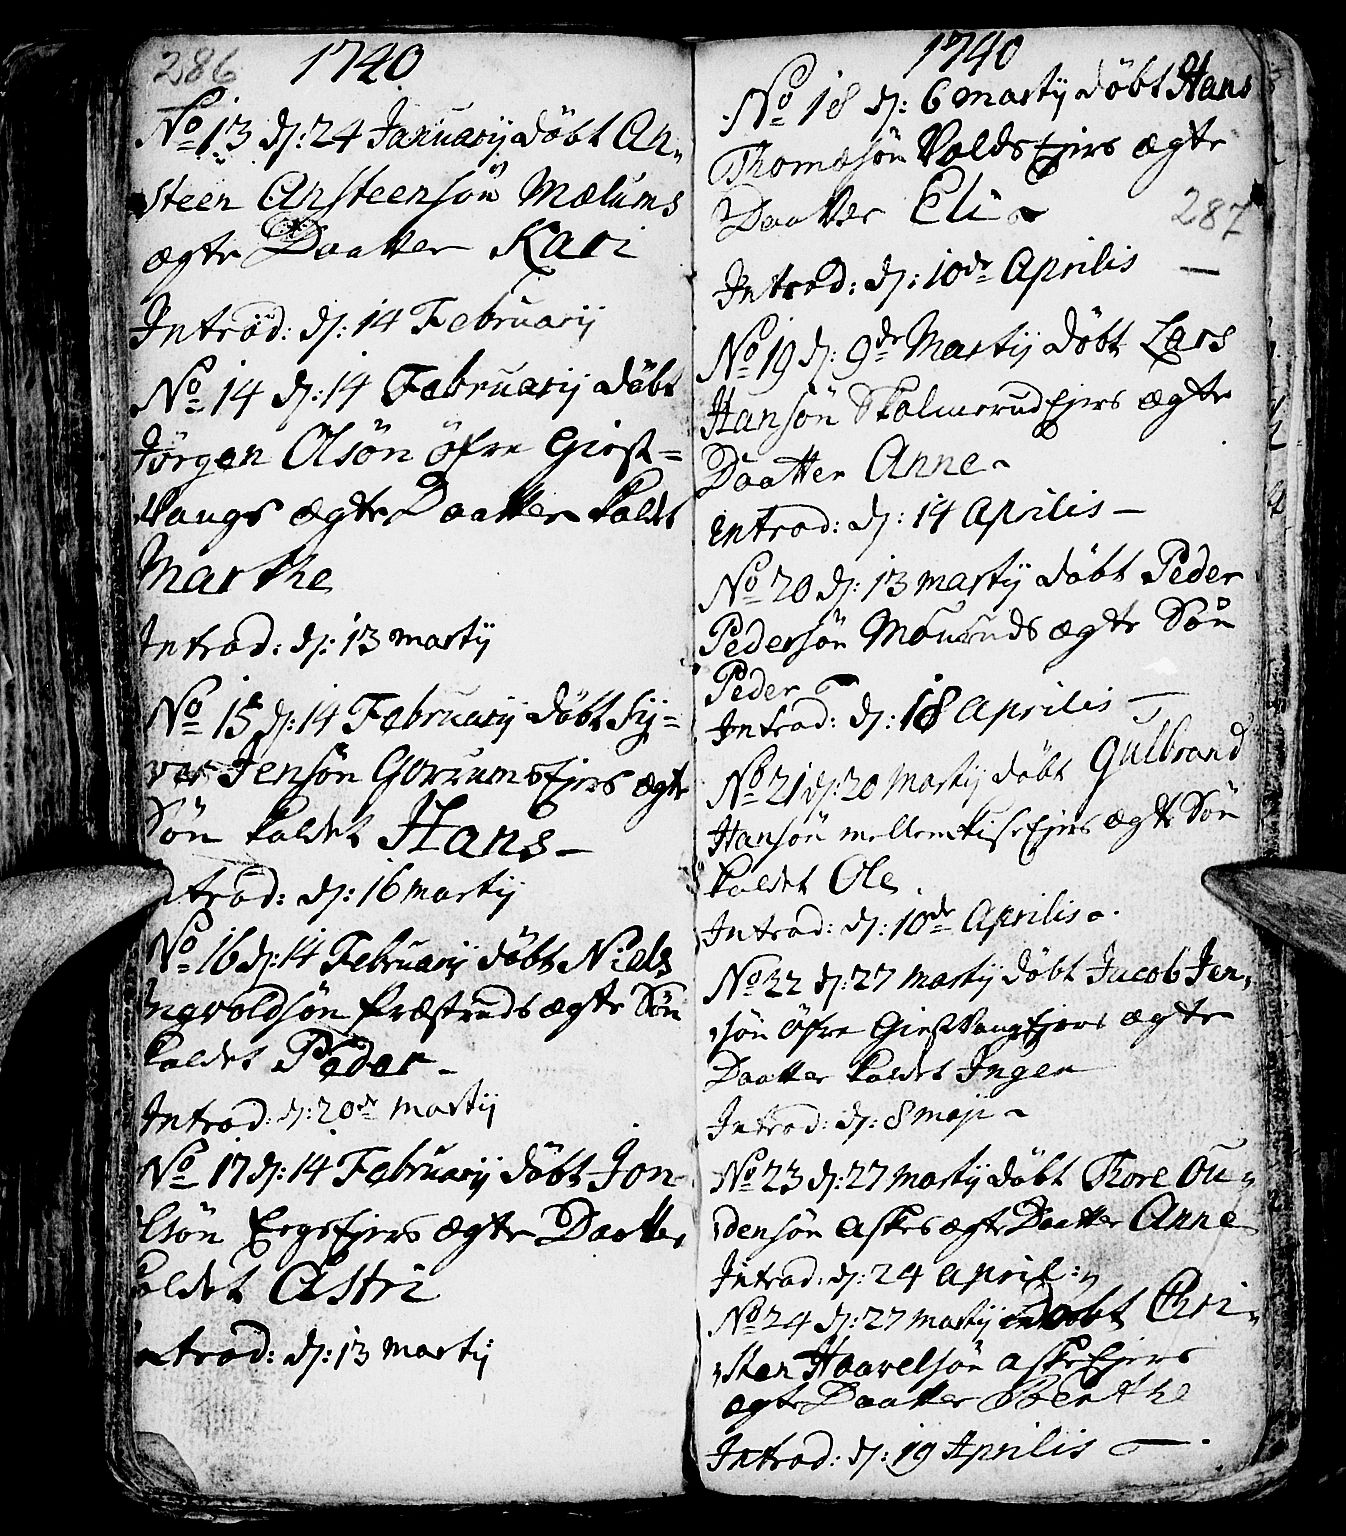 286 1740
No 13 d: 24 Januarij döbt An„
steen Ansteensön Mælums
ægte Daatter Kari
Introd: d: 14 Februarij
No 14 d: 14 Februarij döbt
Jörgen Olsön öfre Giest=
Vangs ægte Daatter kaldet
Marthe
Introd: d: 13 martij
No 15 d: 14 Februarij döbt Sy=
ver Jensön Gorrums Ejers ægte
Sön kaldet Hans –
Introd: d: 16 martij
No 16 d: 14 Februarij döbt Niels
Ingvoldsön Præstruds ægte Sön
kaldet Peder –
Introd: d: 20de martij
No 17 d: 14 Februarij döbt Jon
Olsön Ergs Ejers ægte Daatter
kaldet Astri
Introd: d: 13 martij
1740
No 18 d: 6 martij döbt Hans
Thomæsön Volds Ejers ægte
Daatter Eli
287
Introd: d: 10de Aprilis –
No 19 d: 9de Martij döbt Lars
Hansön Skolmerud Ejers ægte
Daatter Anne
Introd: d: 14 Aprilis –
No 20 d: 13 martij döbt Peder
Pedersön Mouruds ægte Sön
Peder
Introd: d: 18 Aprilis –
No 21 d: 20 Martij döbt Gulbrand
Hansön mellem Ejers ægte Sön
kaldet Ole
Introd: d: 10de Aprilis
No 22 d: 27 martij döbt Jacob Jen„
sön öfre Giestvang Ejers ægte
Daatter kaldet Inger
Introd: d: 8 maji
No 23 d: 27 martij döbt Thore Ou„
densön Askes ægte Daatter Anne
Introd: d: 24 april:
No 24 d: 27 martij döbt Chri„
sten Haavelsön Aske Ejers
ægte Daatter Berthe
Introd: d: 19 Aprilis –